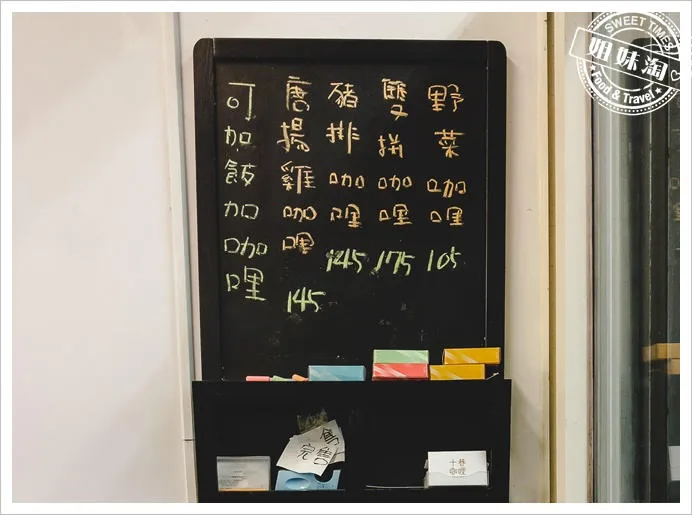 野菜咖哩 105
雙拼咖哩 175
豬排咖哩 145
唐揚雞咖哩 145
可加飯加咖哩
售完
十巷
咖哩
SWEET TIMES
姐妹淘
Food & Travel